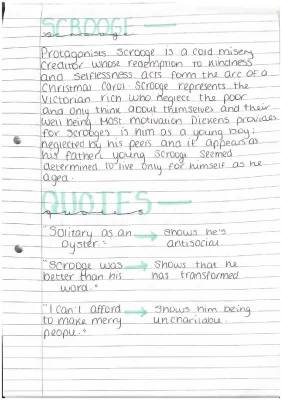 SCROOGE —
Protagonist. Scrooge is a cold misery
creditor whose redemption to kindness
and selflessness acts form the arc of a
Christmas Carol Scrooge represents the
Victorian rich who neglect the poor
and only think about themselves and their
well being. Most motivation Dickens provides
for Scrooges is him as a young boy:
neglected by his peers and it appears as
his father. young Scroogi seemed
determined to live only for himself as he
aged.
QUOTES —
"Solitary as an → shows he's
oyster." antisocial
"Scrooge was → Shows that he
better than his has transformed
word."
"I can't afford → Shows him being
to make merry uncharitable.
people."